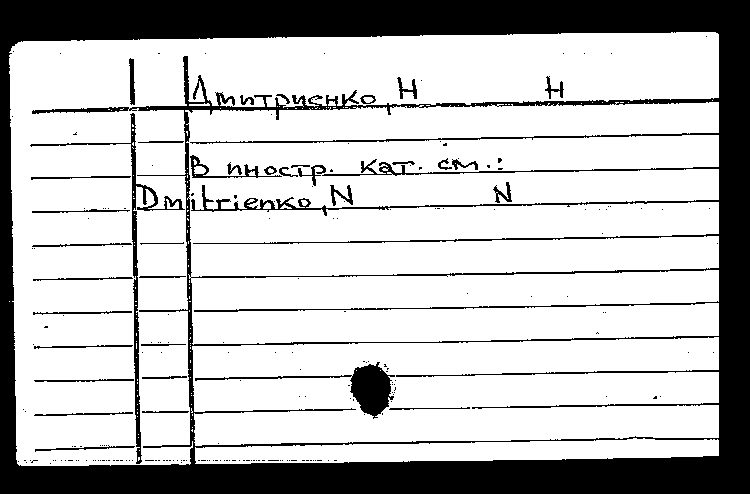 Дмитриенко, Н Н
В иностр. кат. см.:
Dmitrienko, N N